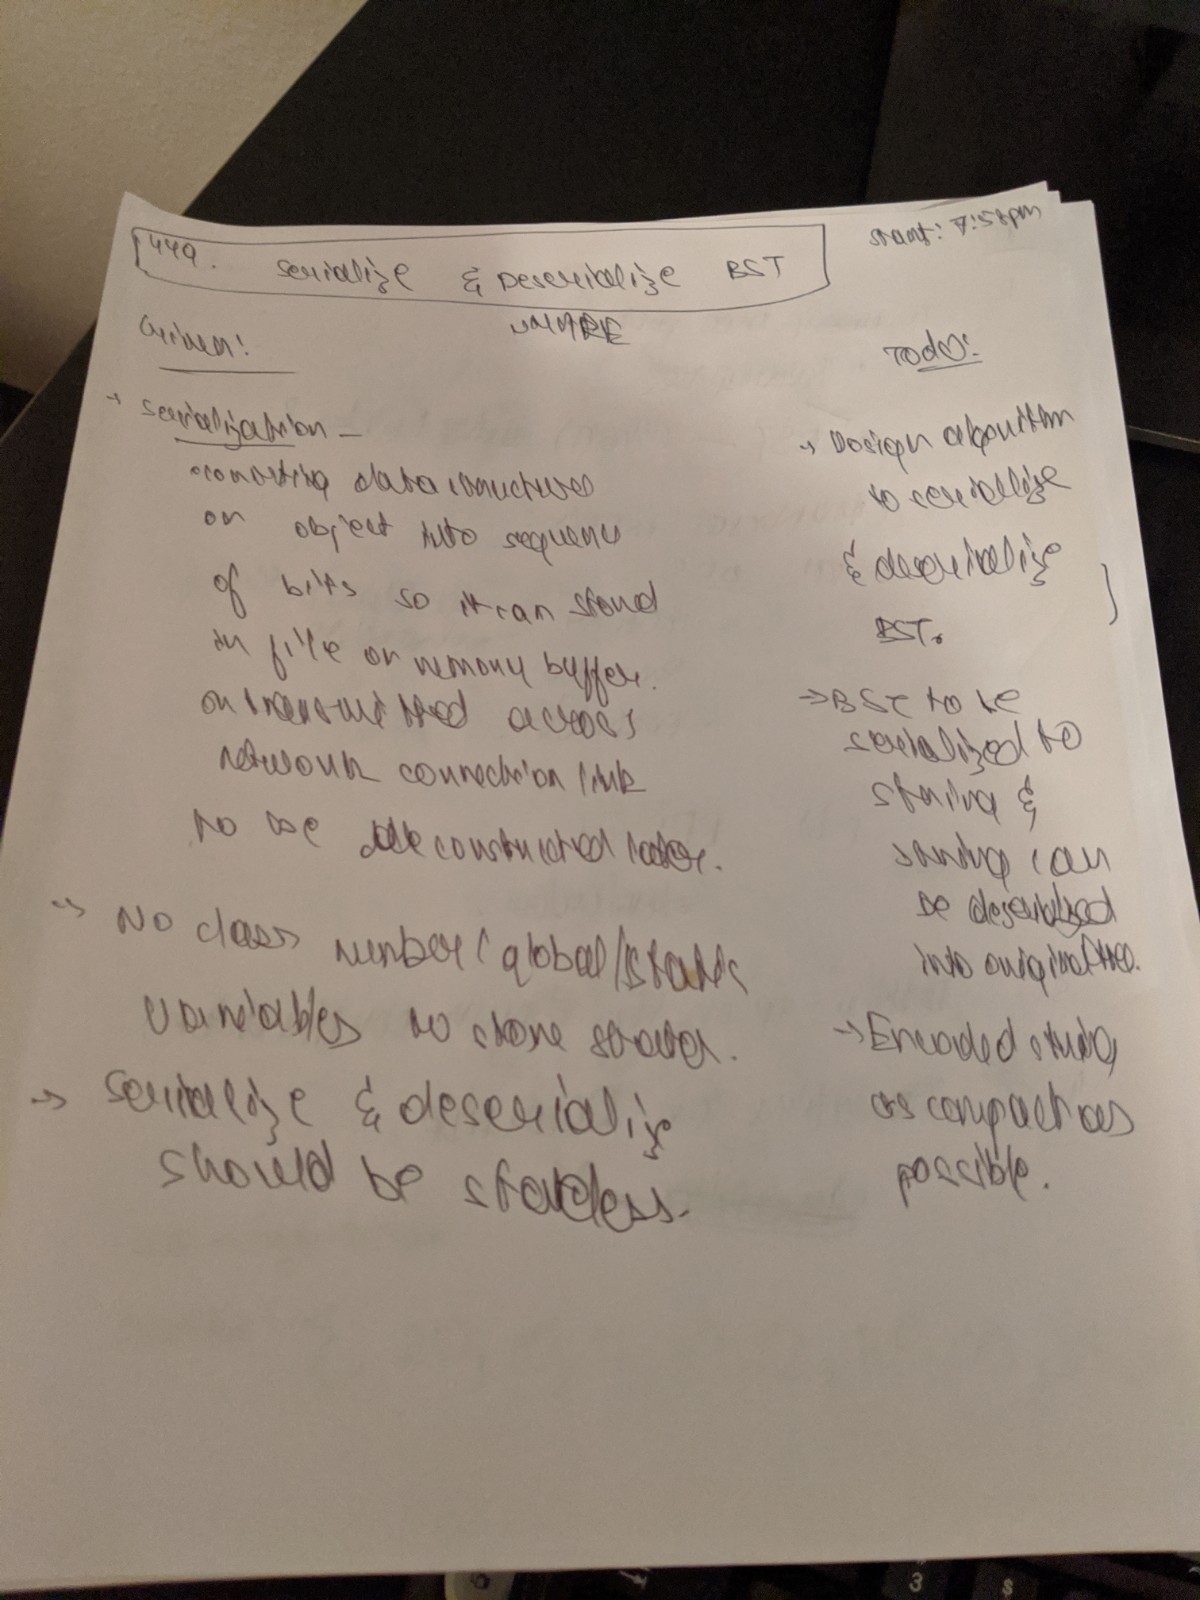 449.
Serialize & Deserialize BST
start: 7:58pm
Given:
Todo:
→ Serialization -
converting data structures
or object into sequence
of bits so it can stored
in file or memory buffer.
or transmitted across
network connection link
to be reconstructed later.
→ No class member/global/static
variables to store states.
→ Serialize & deserialize
should be stateless.
→ Design algorithm
to serialize
& deserialize
BST.
→ BST to be
serialized to
string &
string can
be deserialized
into original tree.
→ Encoded string
as compact as
possible.
3